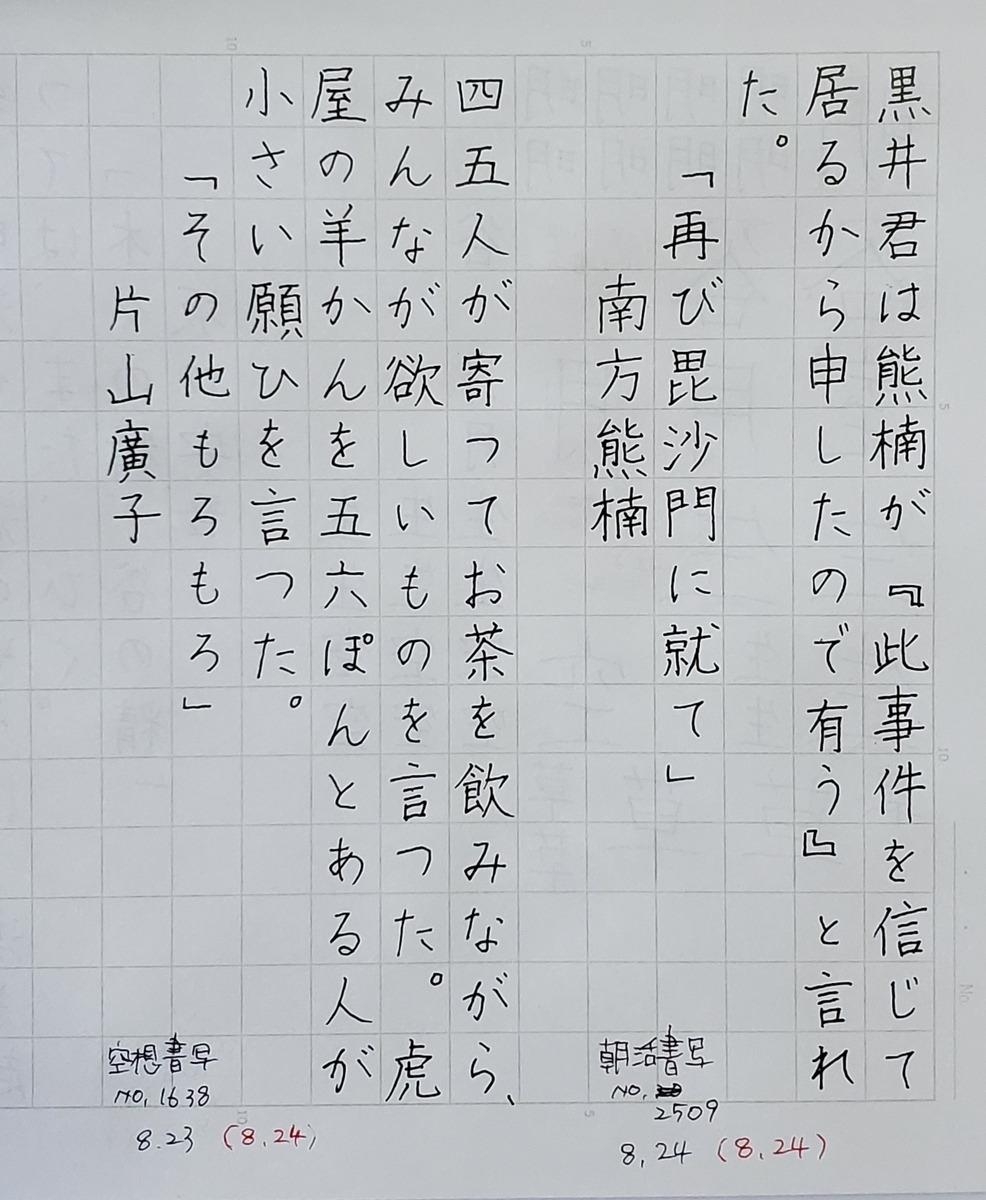 黒井君は熊楠が『此事件を信じて
居るから申したので有う』と言れ
た。
「再び毘沙門に就て」
南方熊楠
四五人が寄つてお茶を飲みながら、
みんなが欲しいものを言つた。虎
屋の羊かんを五六ぽんとある人が
小さい願ひを言つた。
「その他もろもろ」
片山廣子
朝活書写
No.
2509
8.24 (8.24)
空想書写
No.1638
8.23 (8.24)
No.
5
10
5
10
5
10